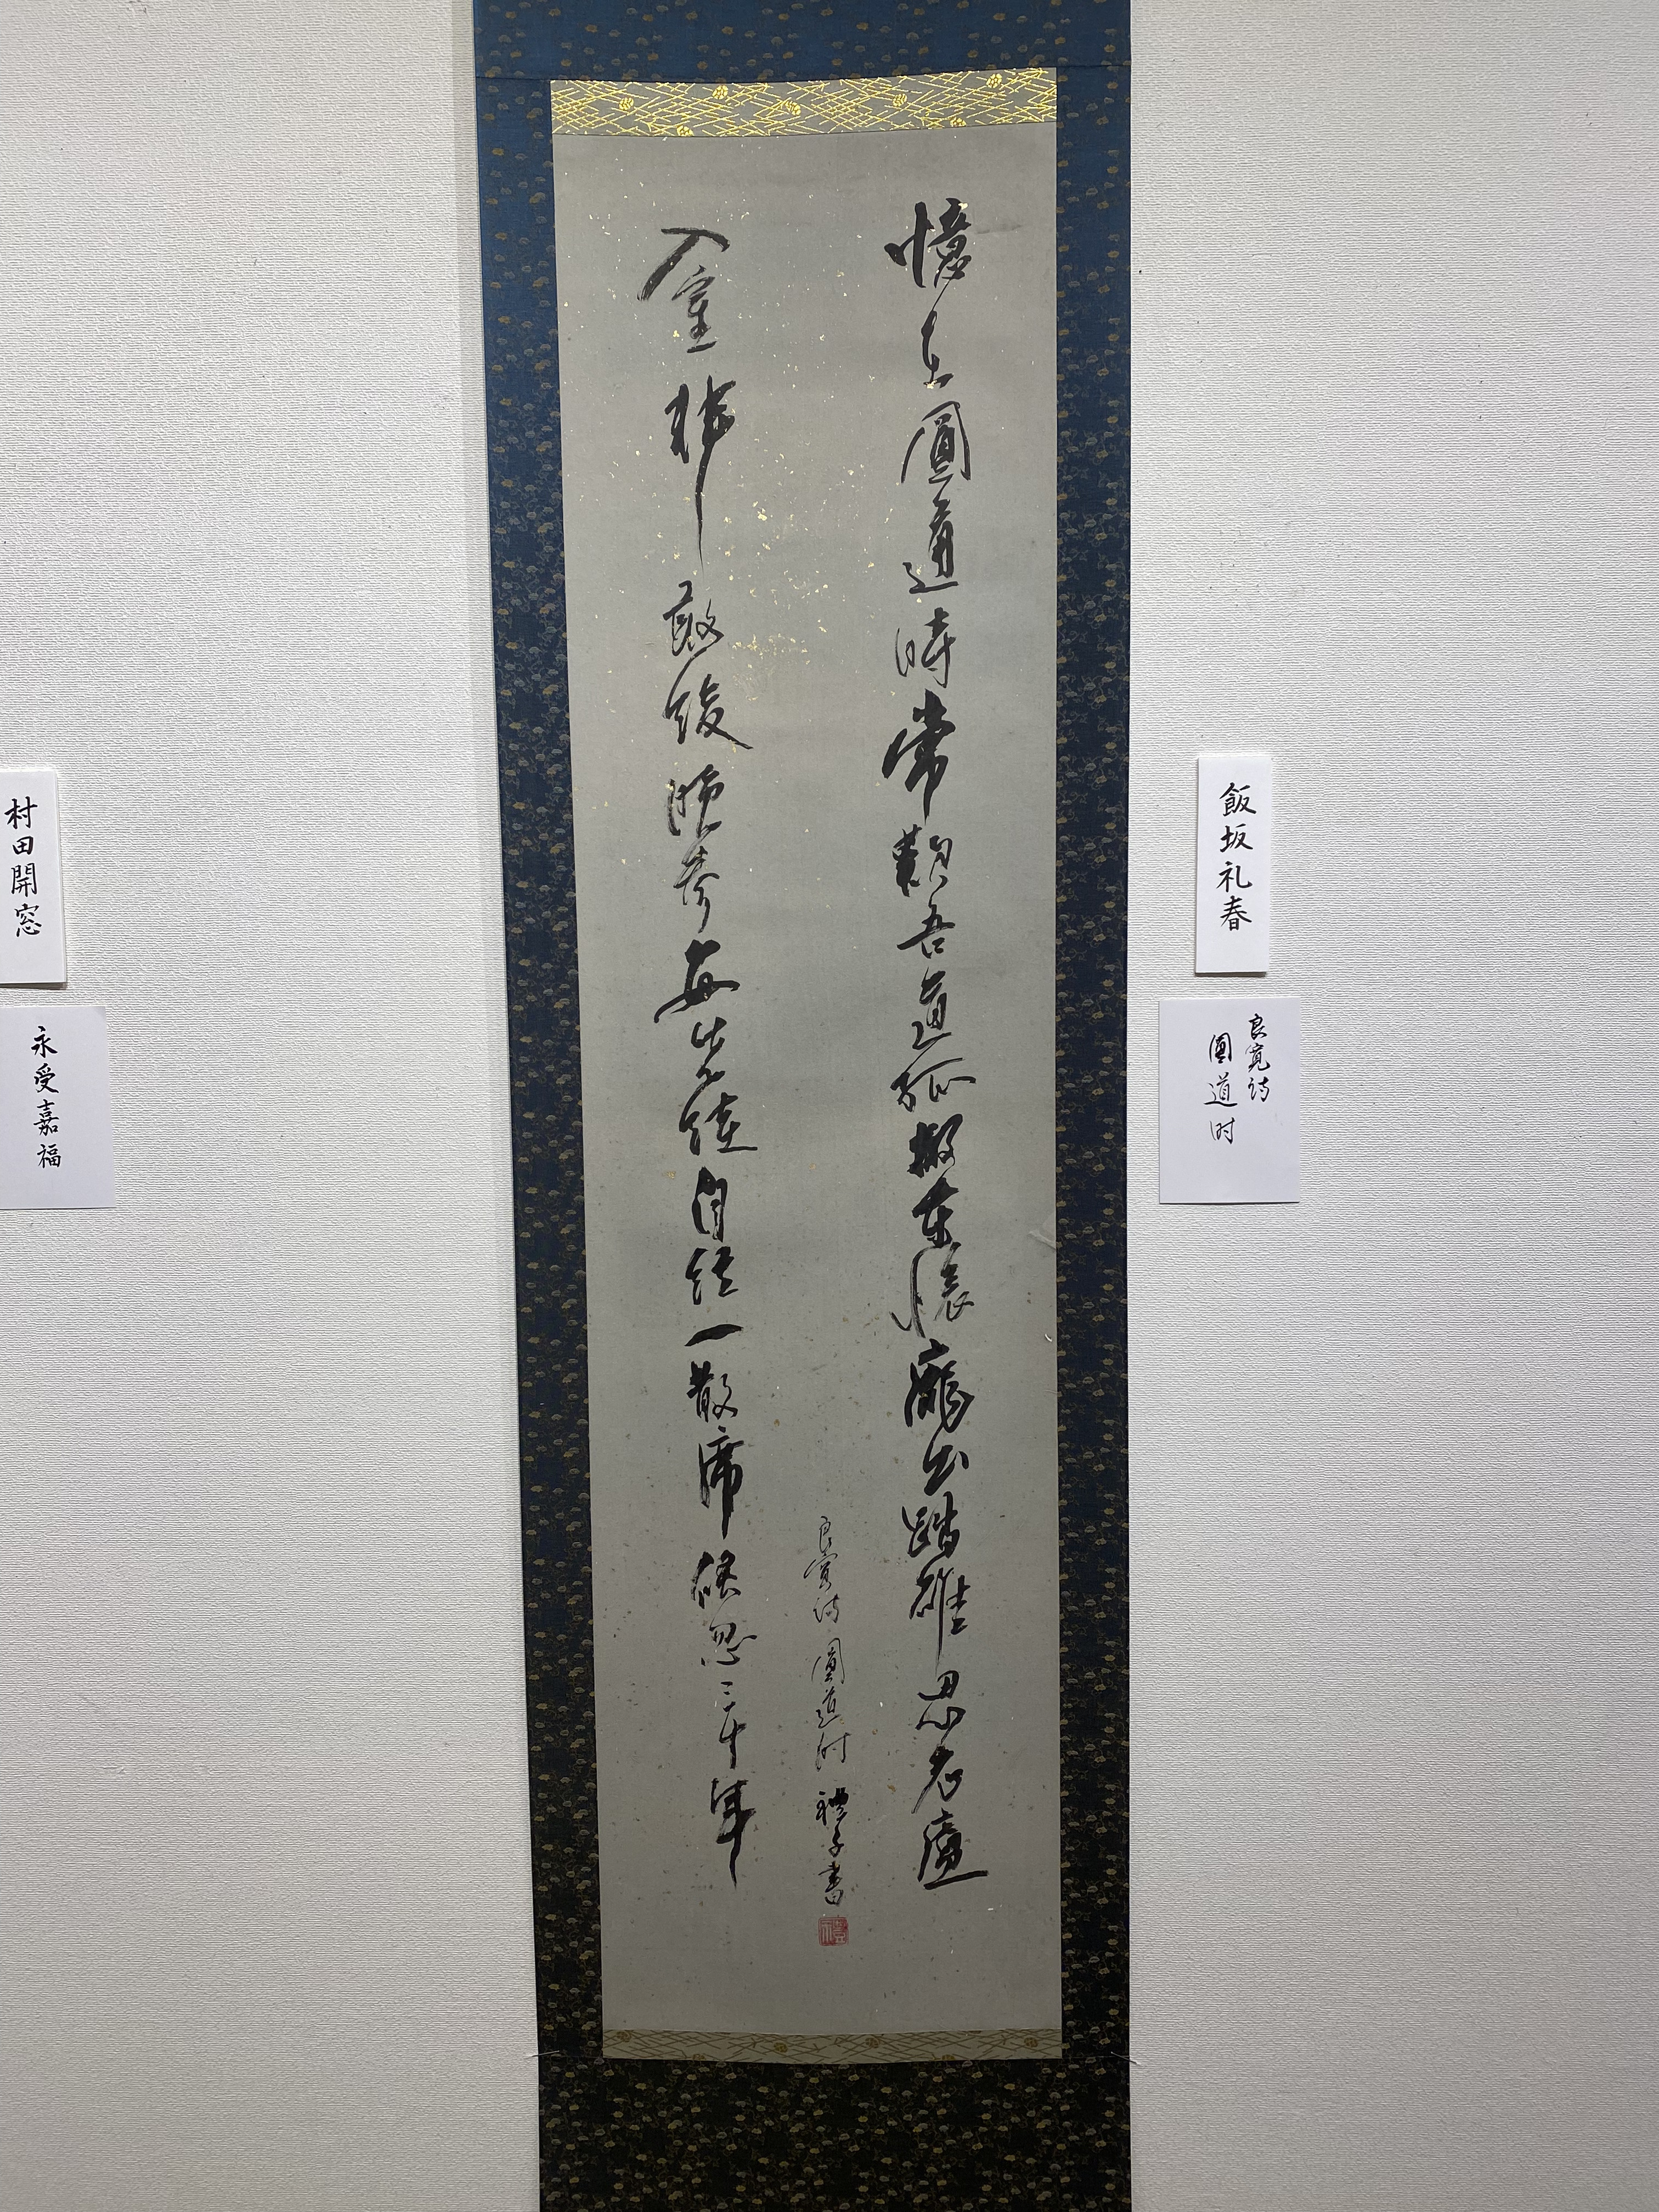 飯坂礼春
良寛詩
圓道时
憶在圓通時常歎吾道孤搬柴懐龐公踏碓思老廬
入室非敢後晩参每先徒自従一散席倏忽三十年
良寛詩 圓道时 禮子書
村田開窓
永受嘉福